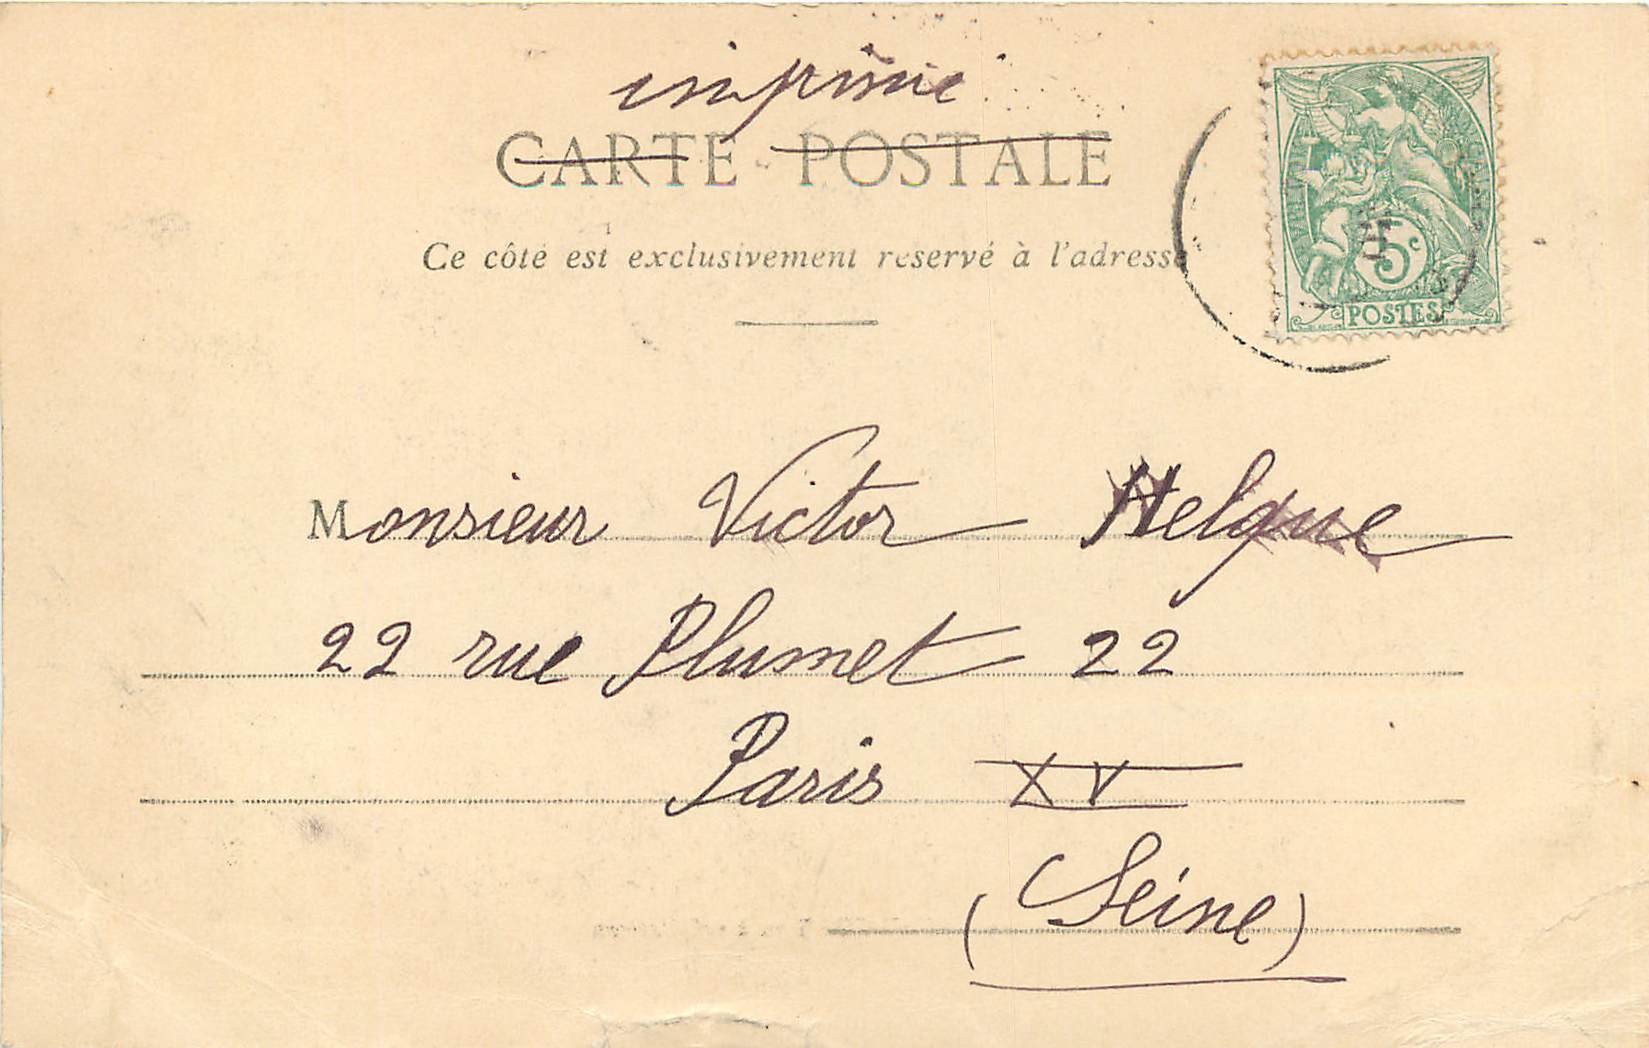 imprimé
CARTE POSTALE
Ce côté est exclusivement reservé à l'adresse
5c
POSTES
Monsieur Victor Helque
22 rue Plumet 22
Paris XV
(Seine)